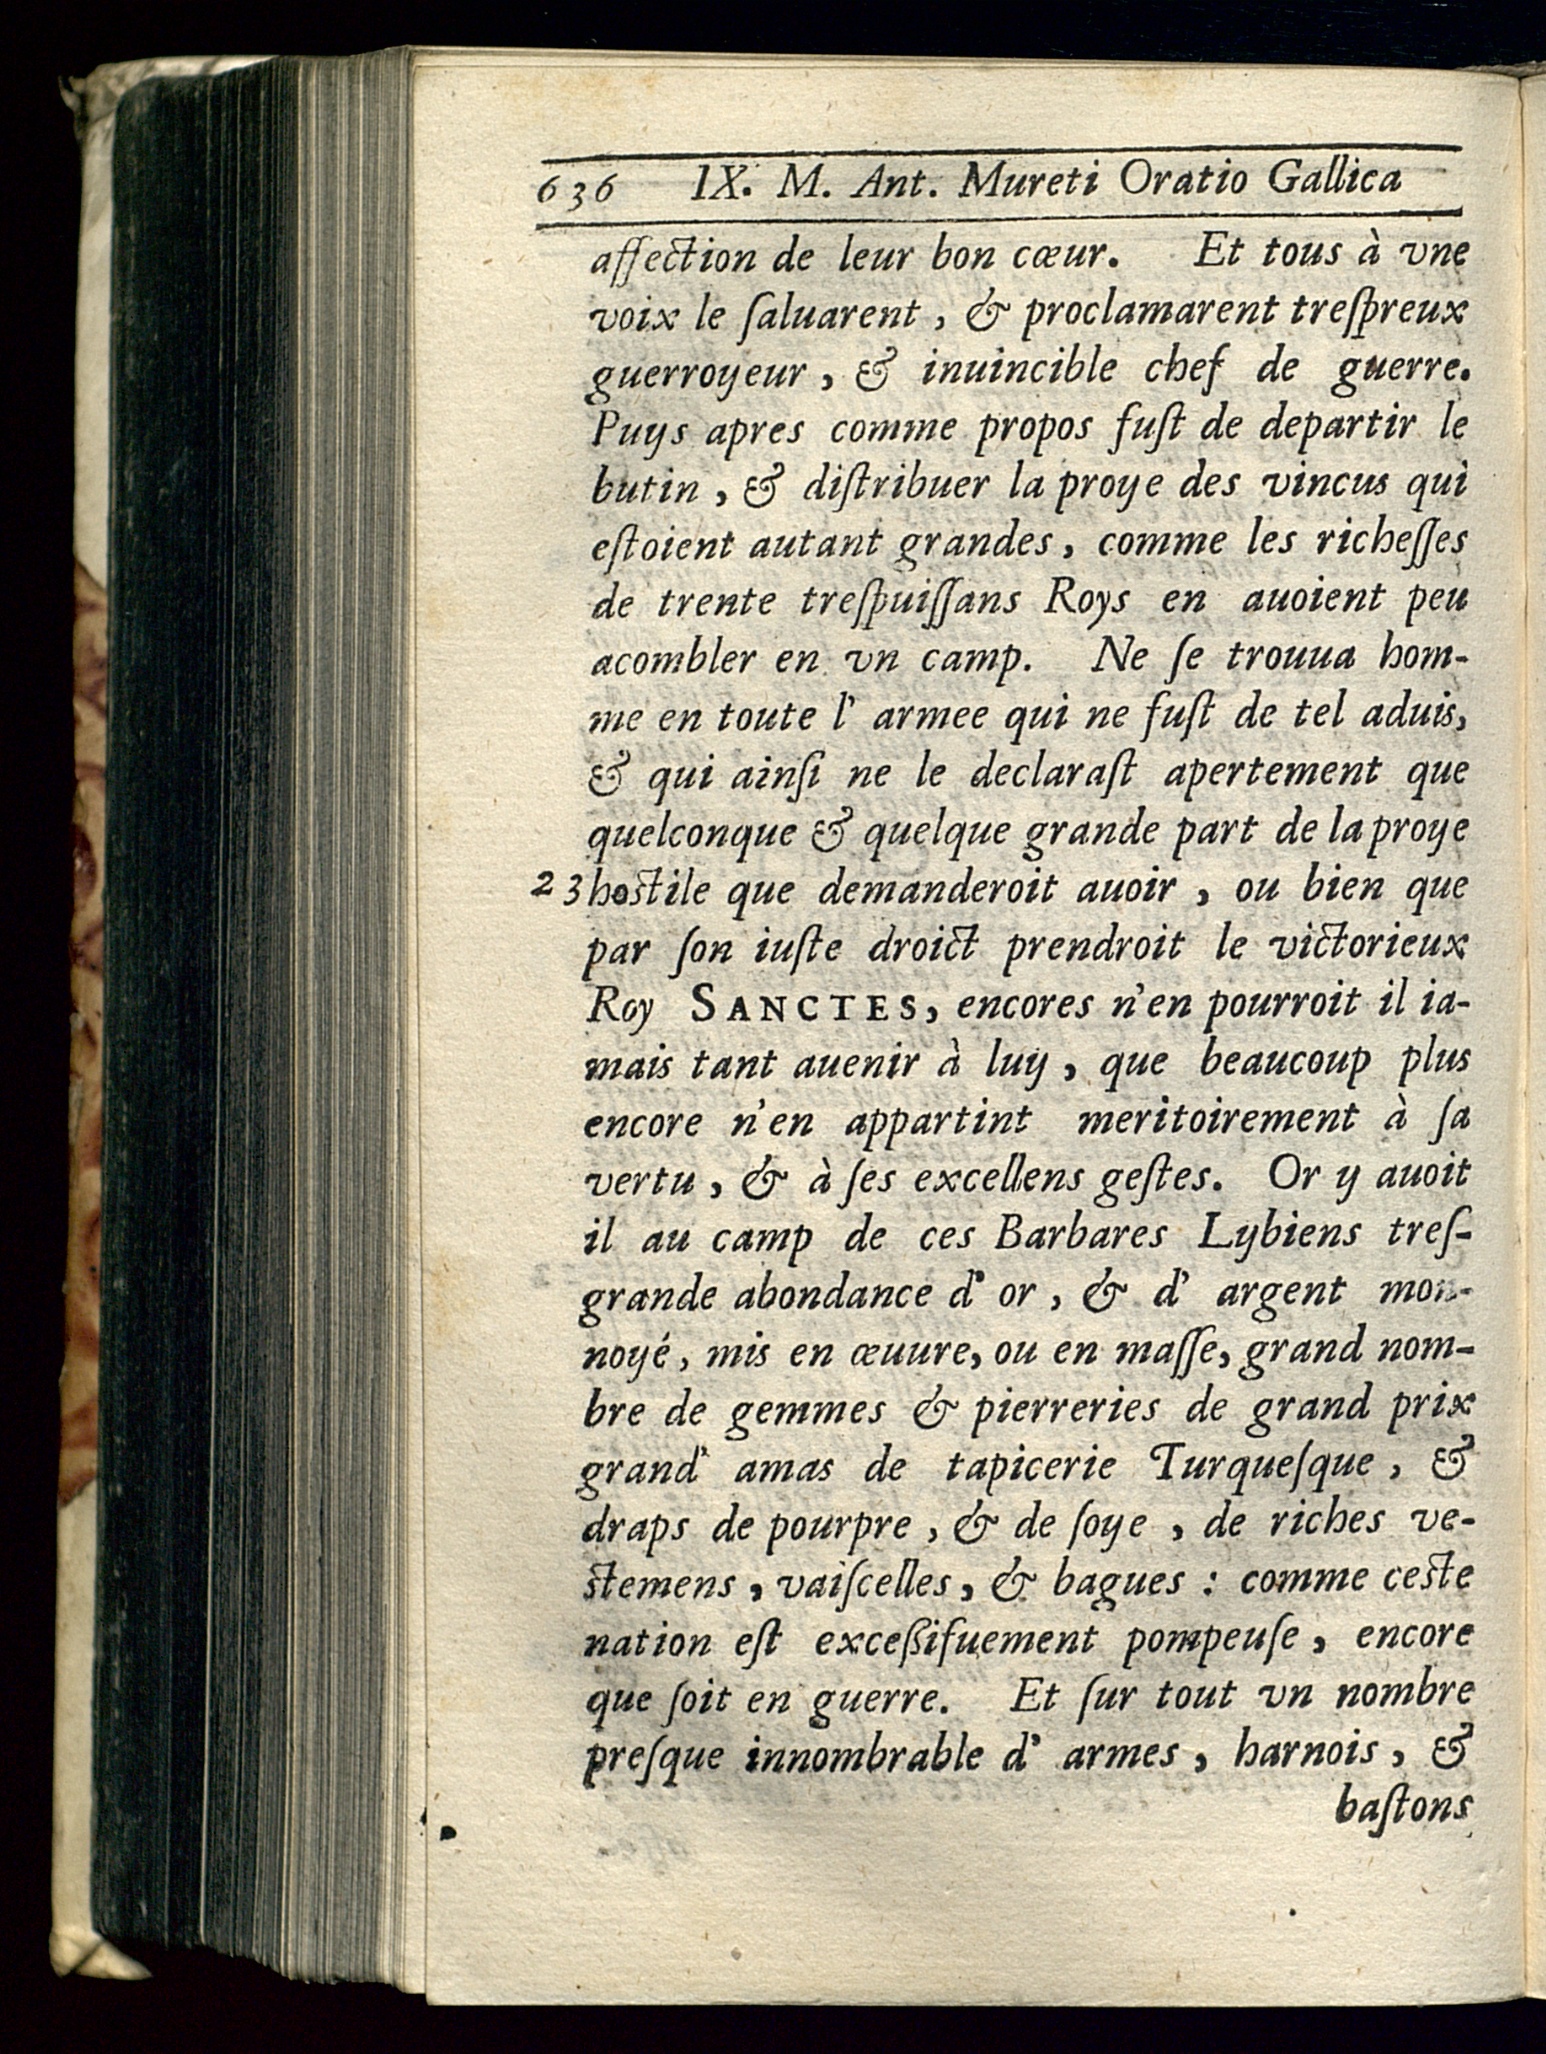 636 IX. M. Ant. Mureti Oratio Gallica
affection de leur bon cœur. Et tous à vne
voix le ſaluarent, & proclamarent treſpreux
guerroyeur, & inuincible chef de guerre.
Puys apres comme propos fuſt de departir le
butin, & diſtribuer la proye des vincus qui
eſtoient autant grandes, comme les richeſſes
de trente treſpuiſſans Roys en auoient peu
acombler en vn camp. Ne ſe trouua hom-
me en toute l' armee qui ne fuſt de tel aduis,
& qui ainſi ne le declaraſt apertement que
quelconque & quelque grande part de la proye
23 hoſtile que demanderoit auoir, ou bien que
par ſon iuſte droict prendroit le victorieux
Roy SANCTES, encores n'en pourroit il ia-
mais tant auenir à luy, que beaucoup plus
encore n'en appartint meritoirement à ſa
vertu, & à ſes excellens geſtes. Or y auoit
il au camp de ces Barbares Lybiens treſ-
grande abondance d' or, & d' argent mon-
noyé, mis en œuure, ou en maſſe, grand nom-
bre de gemmes & pierreries de grand prix
grand' amas de tapicerie Turqueſque, &
draps de pourpre, & de ſoye, de riches ve-
ſtemens, vaiſcelles, & bagues : comme ceſte
nation eſt exceßifuement pompeuſe, encore
que ſoit en guerre. Et ſur tout vn nombre
preſque innombrable d' armes, harnois, &
baſtons